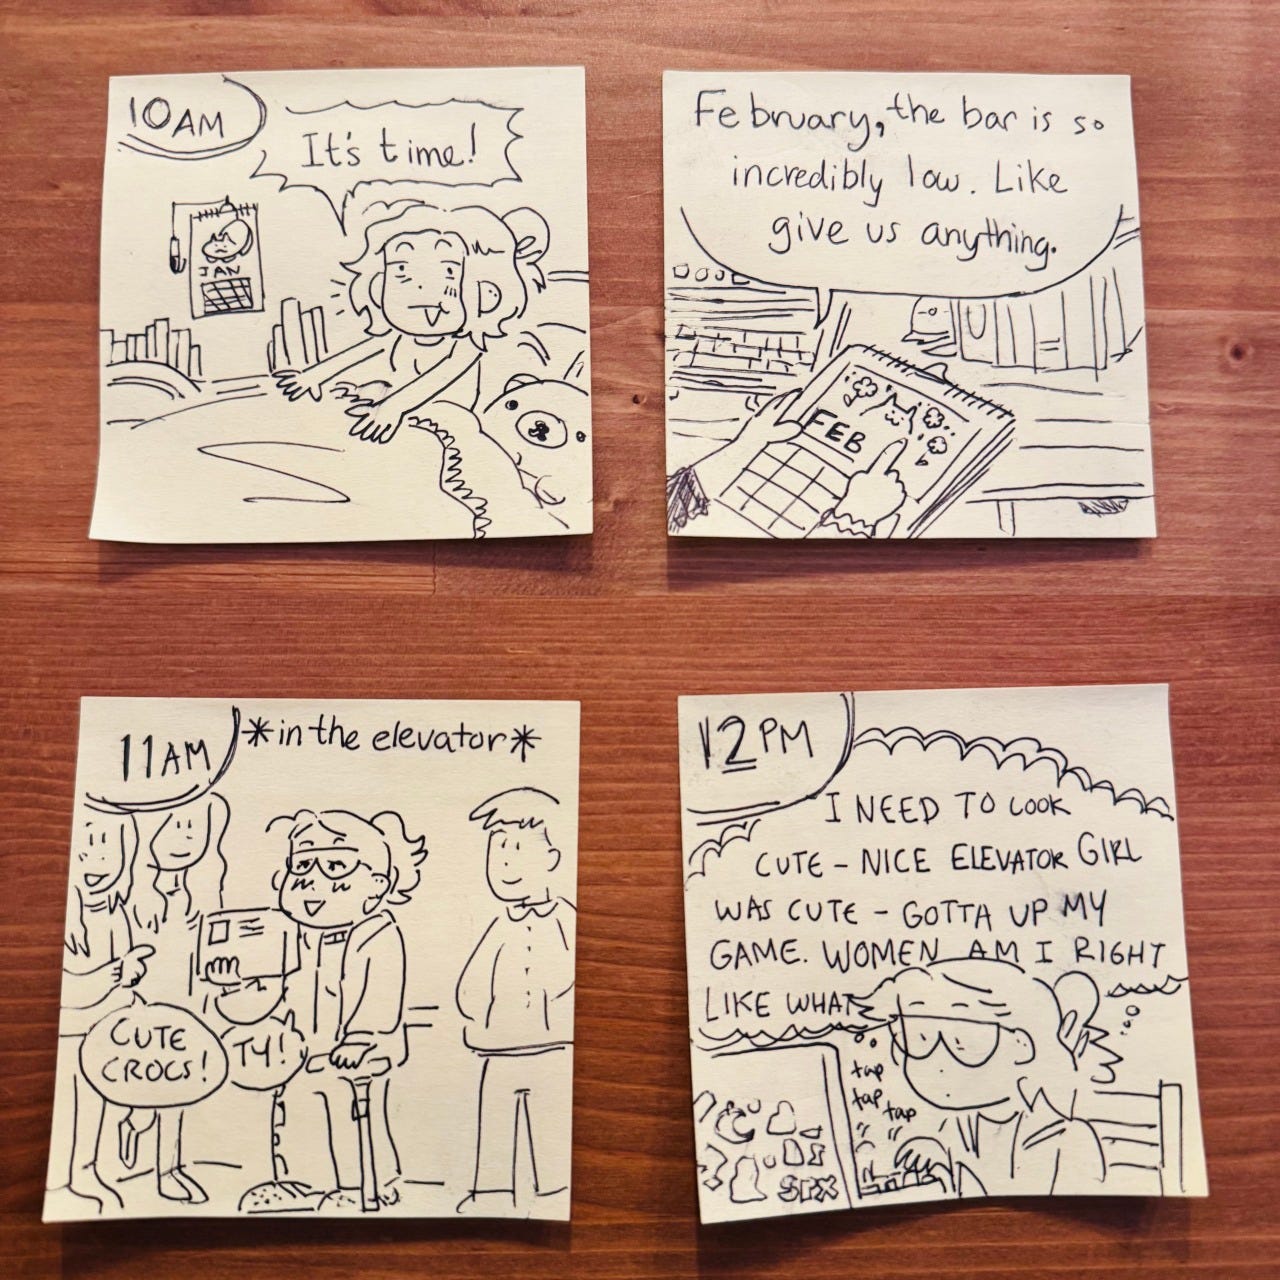 10AM
It's time!
JAN
February, the bar is so
incredibly low. Like
give us anything.
FEB
11AM
*in the elevator*
CUTE
CROCS!
TY!
12PM
I NEED TO LOOK
CUTE - NICE ELEVATOR GIRL
WAS CUTE - GOTTA UP MY
GAME. WOMEN AM I RIGHT
LIKE WHAT
tap
tap
tap